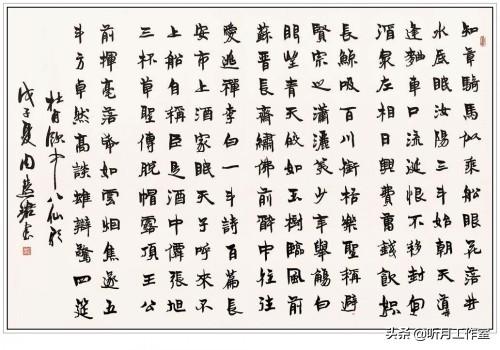 知章騎馬似乘船眼花落井
水底眠汝陽三斗始朝天道
逢麴車口流涎恨不移封向
酒泉左相日興費萬錢飲如
長鯨吸百川銜桮樂聖稱避
賢宗之瀟灑美少年舉觴白
眼望青天皎如玉樹臨風前
蘇晉長齋繡佛前醉中往往
愛逃禪李白一斗詩百篇長
安市上酒家眠天子呼來不
上船自稱臣是酒中僊張旭
三杯草聖傳脫帽露頂王公
前揮毫落紙如雲烟焦遂五
斗方卓然高談雄辯驚四筵
杜甫飲中八仙歌
戊子夏周慧珺書
头条@听月工作室